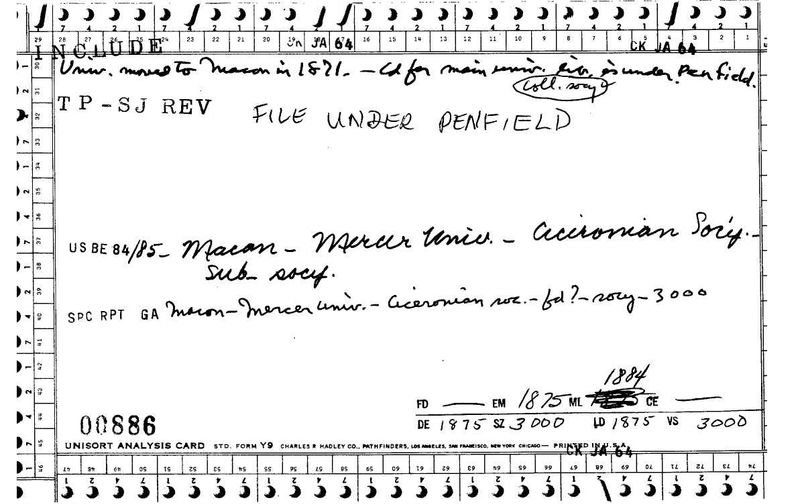 28 27 26 25 24 23 22 21 20 19 18 17 16 15 14 13 12 11 10 9 8 7 6 5 4 3 2 1
INCLUDE JA 64 CK JA 64
Univ. moved to Macon in 1871. – Cd for main univ. lib. is under Penfield.
coll. socy?
TP-SJ REV FILE UNDER PENFIELD
US BE 84/85– Macon – Mercer Univ. – Ciceronian Soc'y. –
Sub – socy.
SPC RPT GA Macon – Mercer Univ. – Ciceronian soc. – fd? – socy – 3000
1884
FD — EM 1875 ML CE —
DE 1875 SZ 3000 LD 1875 VS 3000
00886
UNISORT ANALYSIS CARD STD. FORM Y9 CHARLES R HADLEY CO., PATHFINDERS, LOS ANGELES, SAN FRANCISCO, NEW YORK CHICAGO — PRINTED IN U.S.A.
CK JA 64